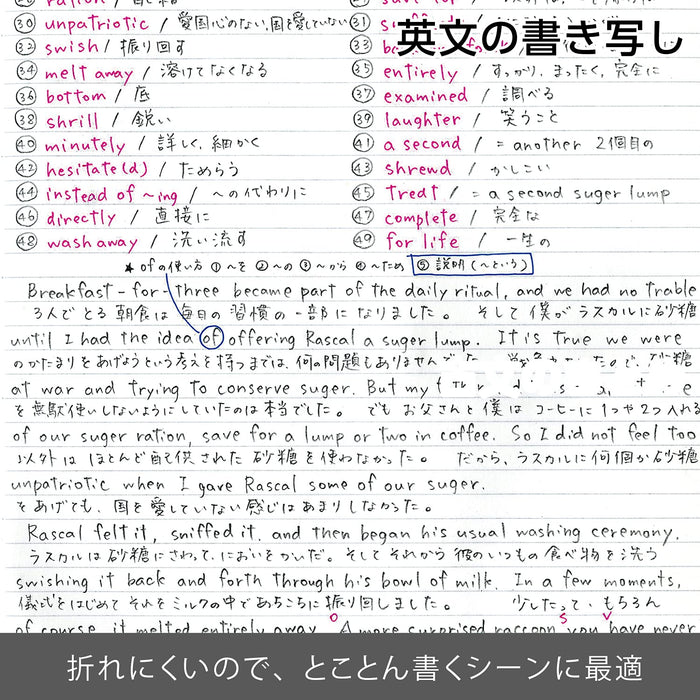 英文の書き写し
㉚ unpatriotic / 愛国心のない、国を愛していない
㉜ swish / 振り回す
㉞ melt away / 溶けてなくなる
㉟ entirely / すっかり、まったく、完全に
㊱ bottom / 底
㊲ examined / 調べる
㊳ shrill / 鋭い
㊴ laughter / 笑うこと
㊵ minutely / 詳しく、細かく
㊶ a second / = another 2個目の
㊷ hesitate(d) / ためらう
㊸ shrewd / かしこい
㊹ instead of ~ing / ~の代わりに
㊺ treat / = a second suger lump
㊻ directly / 直接に
㊼ complete / 完全な
㊽ wash away / 洗い流す
㊾ for life / 一生の
★ ofの使い方 ①~を ②~の ③~から ④~ため ⑤説明(~という)
Breakfast-for-three became part of the daily ritual, and we had no trable
3人でとる朝食は毎日の習慣の一部になりました。 そして僕がラスカルに砂糖
until I had the idea of offering Rascal a suger lump. It is true we were
のかたまりをあげようという考えを持つまでは、何の問題もありませんでした 砂糖
at war and trying to conserve suger. But my
を無駄使いしないようにしていたのは本当でした。 でもお父さんと僕はコーヒーに1つや2つ入れる
of our suger ration, save for a lump or two in coffee. So I did not feel too
以外はほとんど配供された砂糖を使わなかった。 だから、ラスカルに何個か砂糖
unpatriotic when I gave Rascal some of our suger.
をあげても、国を愛していない感じはあまりしなかった。
Rascal felt it, sniffed it, and then began his usual washing ceremony,
ラスカルは砂糖にさわって、においをかいだ。そしてそれから彼のいつもの食べ物を洗う
swishing it back and forth through his bowl of milk. In a few moments,
儀式をはじめてそれをミルクの中であちこちに振り回しました。 少したって、もちろん
of course, it melted entirely away. A more surprised raccoon you have never
折れにくいので、とことん書くシーンに最適